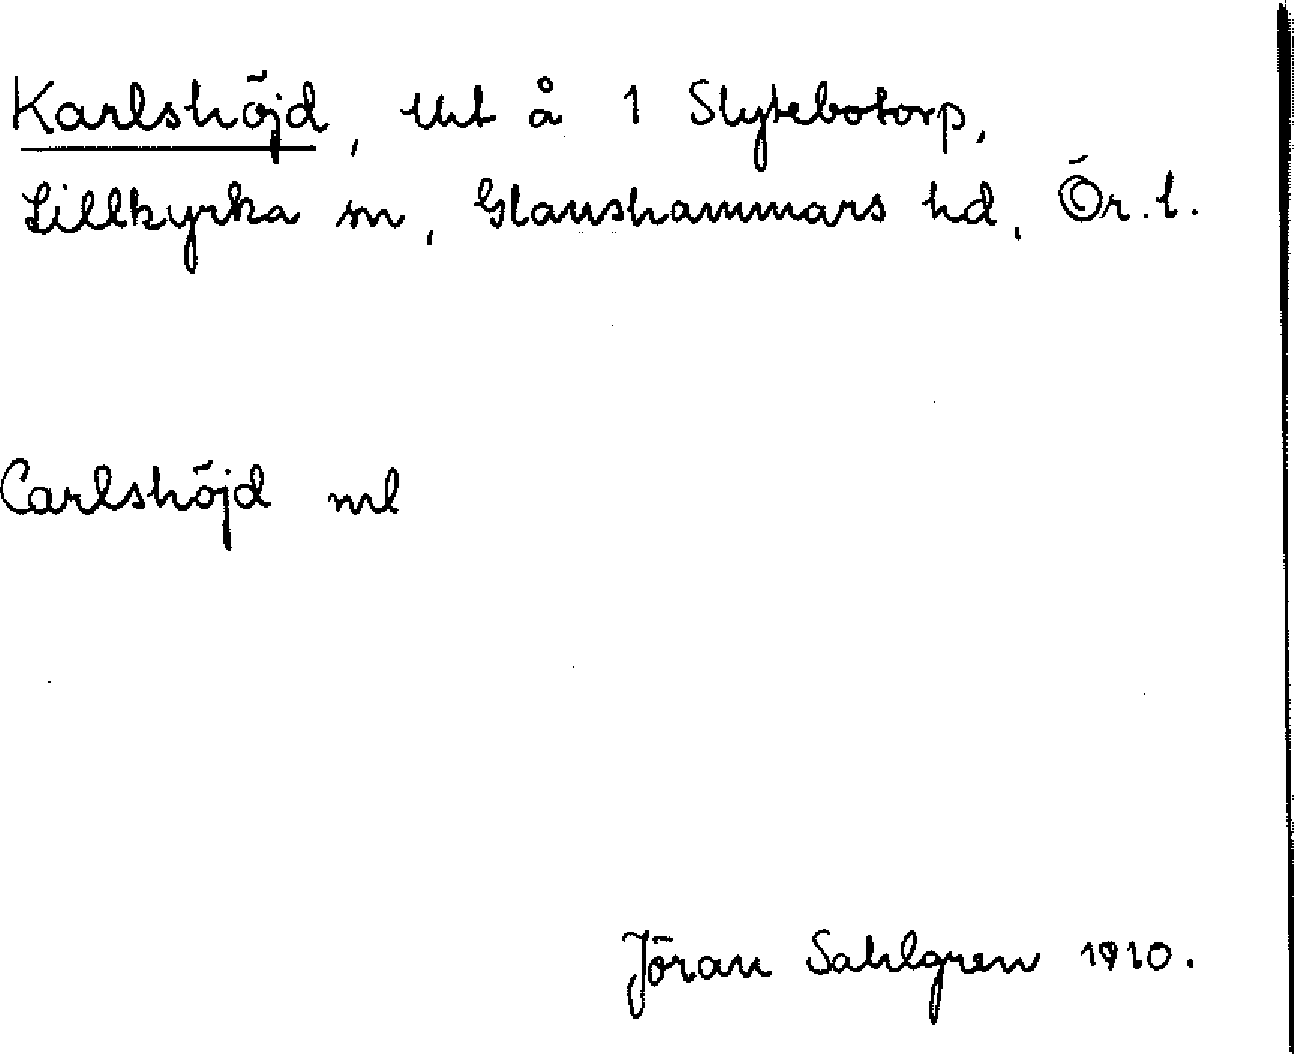 Karlshöjd, tht å 1 Slytebotorp,
Lillkyrka sn, Glanshammars hd, Ör. l.
Carlshöjd ml
Jöran Sahlgren 1910.